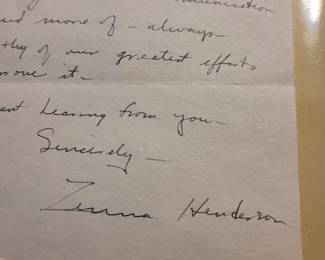 ed more of - always
thy of our greatest efforts
prove it -
ant hearing from you -
Sincerely -
Zenna Henderson